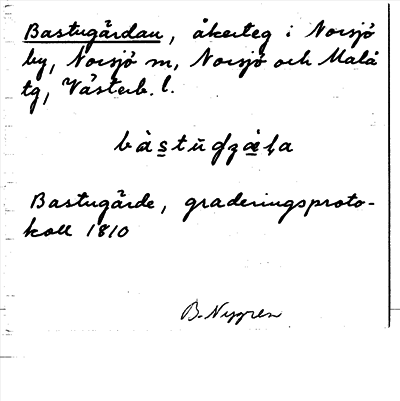 Bastugårdan, åkerteg i Norsjö
by, Norsjö sn, Norsjö och Malå
tg, Västerb. l.
Bastugårde, graderingsproto-
koll 1810
B. Nygren